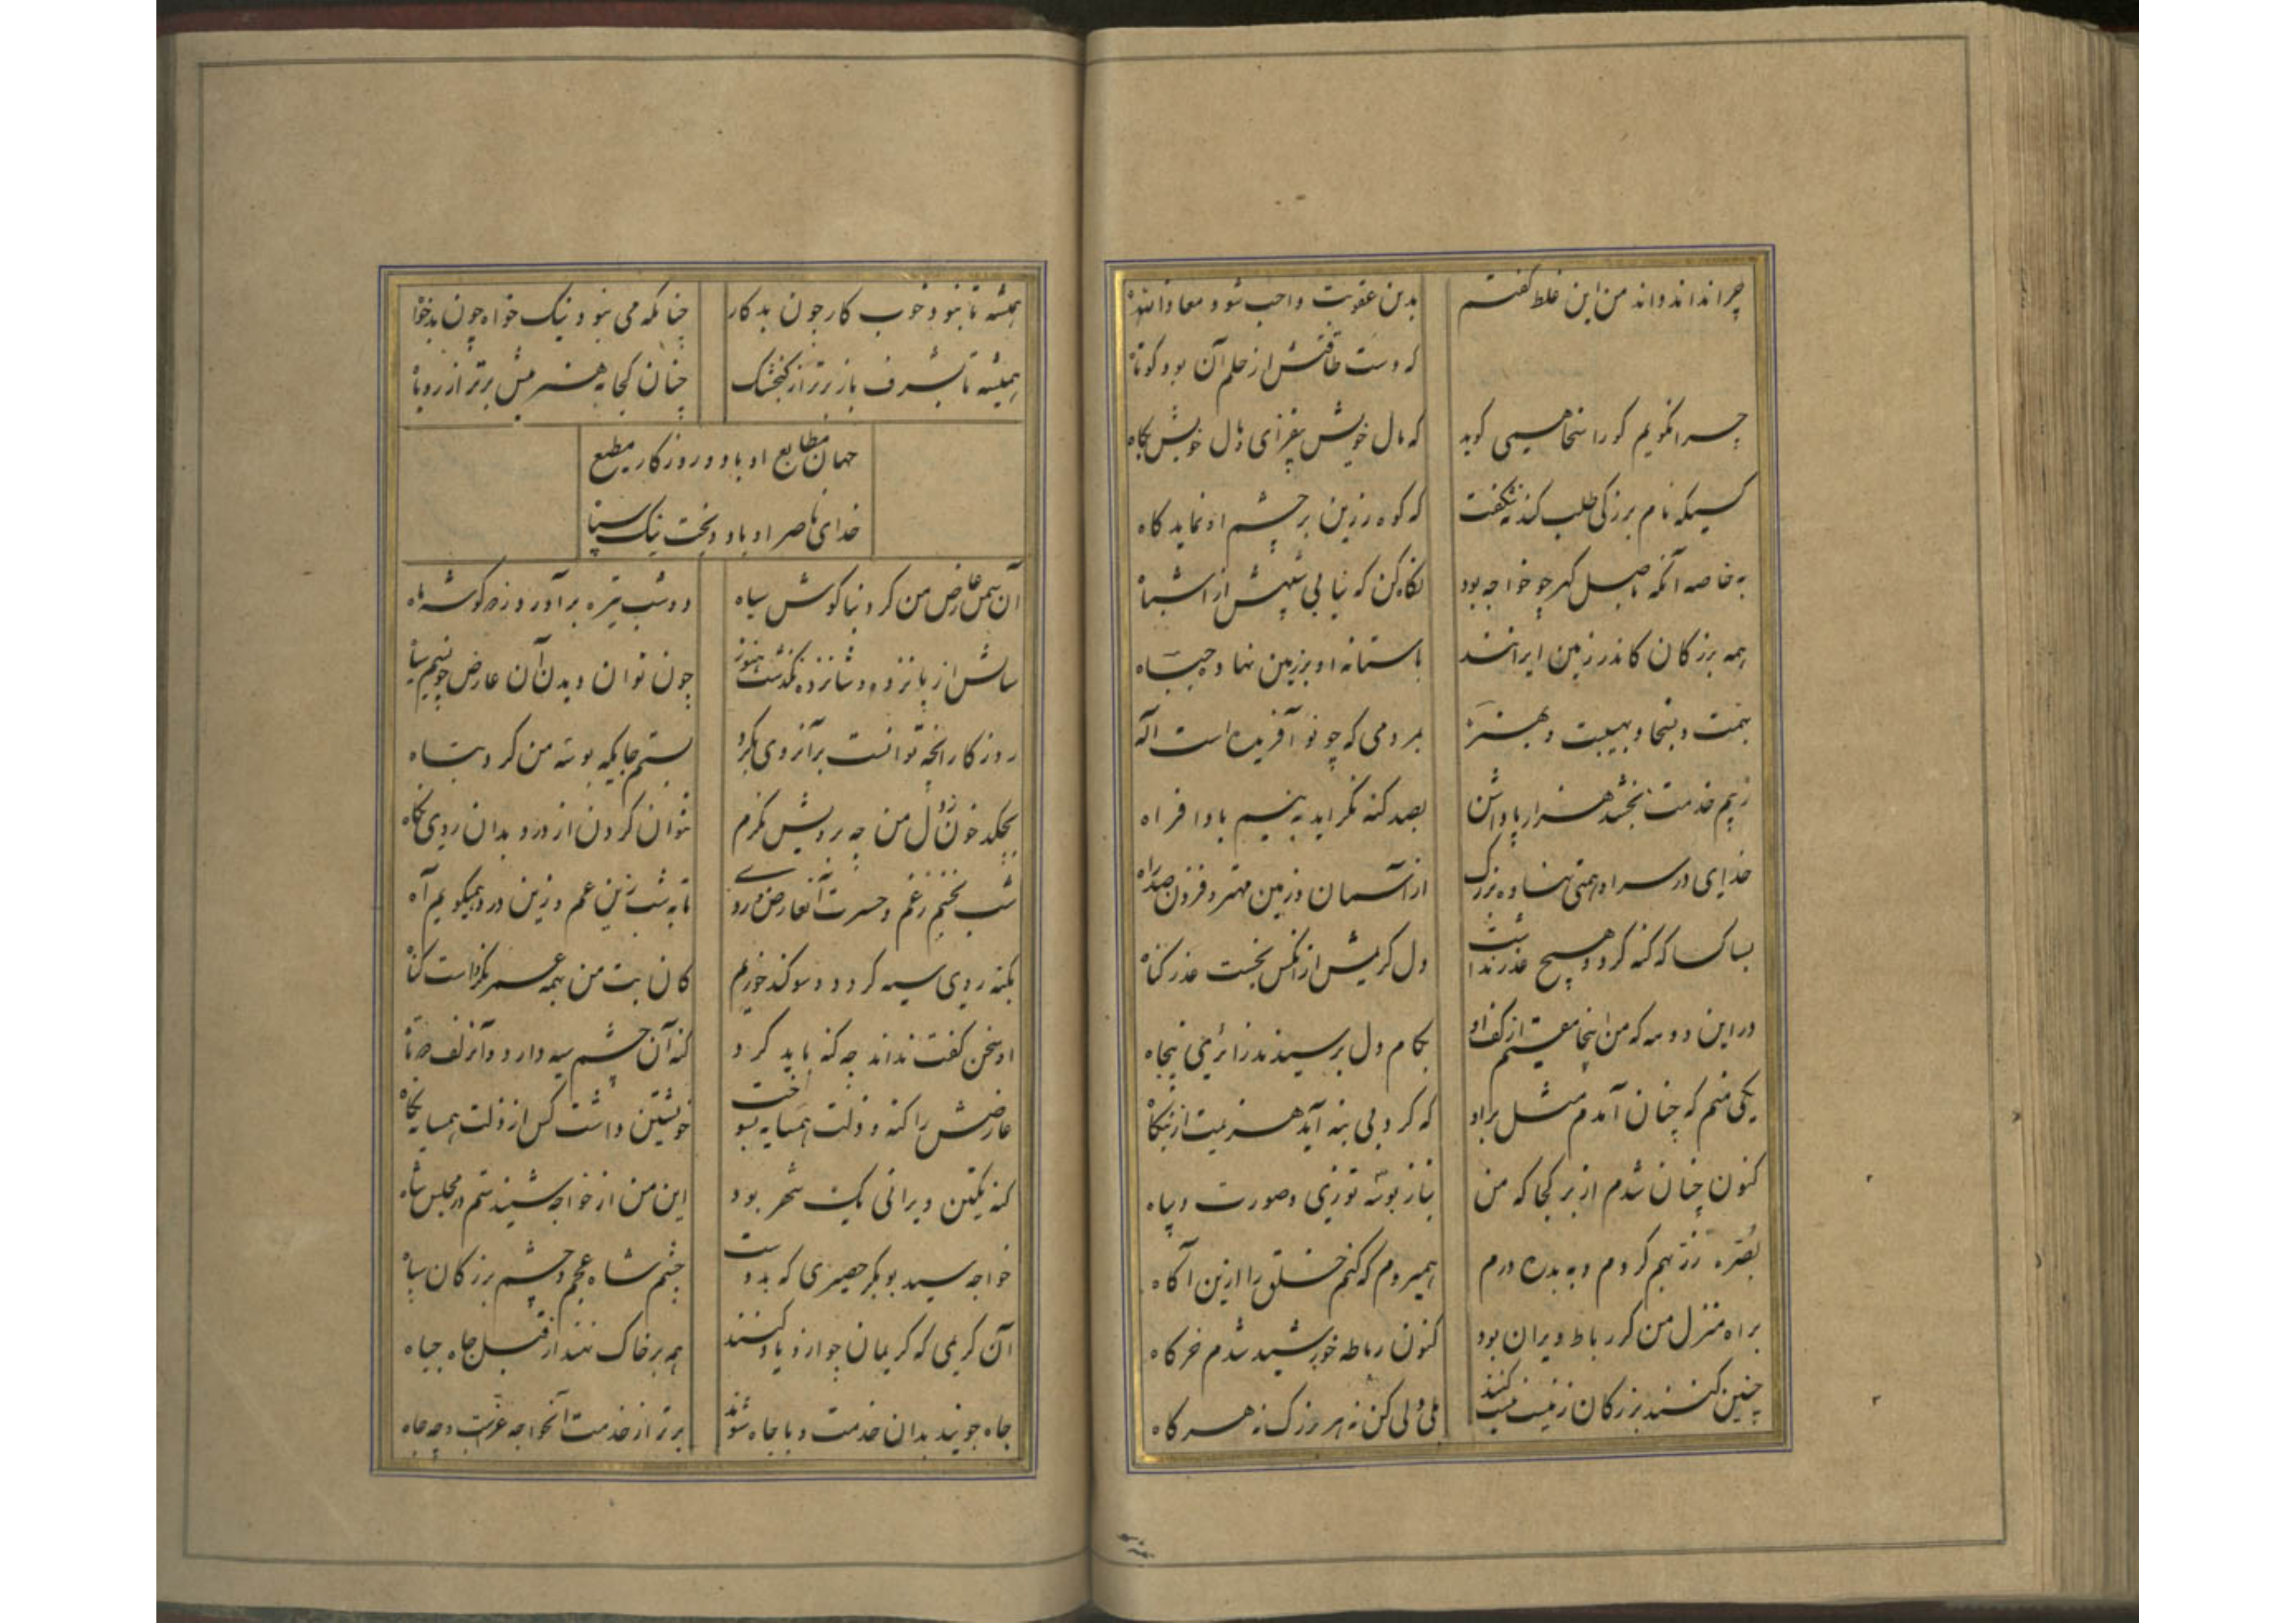 چرا نداند داند من این غلط گفتم بدین عقوبت واجب شود معاذالله
که دست طاقتش از حلم آن بود کوتاه
چرا نگویم کو را سخا همی گوید که مال خویش بیفزای و مال خویش بکاه
کسیکه نام بزرگی طلب کند نه شگفت که کوه زرین بر چشم او نماید کاه
به خاصه آنکه باصل گهر چو خواجه بود نگاه کن که نیابی شبیهش از اشباه
همه بزرگان کاندر زمین ایرانند باستانه او بر زمین نهاده جباه
بهمت و بسخا و بهیبت و بهنر بمردمی که چو تو آفریده است اله
به نیم خدمت بخشد هزار پاداشن بصد گنه نگراید به نیم بادافراه
خدای در سر او همتی نهاده بزرگ از آسمان و زمین مهتر و فزون صد راه
بسا کسا که گنه کرد و هیچ عذر نداشت دل کریمش از آنکس بخست عذر گناه
در این دو مه که من اینجا مقیم از کف او بکام دل برسیدند زائری پنجاه
یکی منم که چنان آمدم مثل بر او که کرد بی بنه آید هزیمت از بنگاه
کنون چنان شدم از بر کجا که من بناز پوشم توزی و صورت دیباه
بصره زر بهم کردم و به بدره درم همیروم که کنم خلق را ازین آگاه
براه منزل من گر رباط ویران بود کنون رباطه خورشید شدم خرگاه
چنین کنند بزرگان زنیست هست کنند بلی ولی کن نه هر بزرگ نه هر گاه
همیشه تا بنود خوب کار چون بدکار چنانکه می بنود نیک خواه چون بدخواه
همیشه تا بشرف باز برتر از گنجشک چنان کجا به هنر میش برتر از روباه
جهان مطابع او باد و روزگار مطیع
خدای ناصر او باد و بخت نیک سپاه
آن سمن عارض من کرد بناگوش سیاه دو شب تیره برآورد ز دو گوشه ماه
سالش از پانزده و شانزده نگذشت هنوز چون توان دیدن آن عارض چون سیم سیاه
روزگار آنچه توانست بر آنروی بکرد بستم جایگه بوسه من کرد تباه
بچکد خون ز دل من چو برویش نگرم نتوان کردن از درد بدان روی نگاه
شب نخسبم ز غم و حسرت آنعارض و روی تا به شب زین غم و زین درد همیگویم آه
بگنه روی سیه گردد و سوگند خورم کان بت من بهمه عمر نکرداست گناه
او سخن گفت نداند چه گنه باید کرد گنه آن چشم سیه دارد و آن زلف دوتاه
عارضش را گنه و زلت همسایه بسوخت خویشتن داشت کس از زلت همسایه نگاه
گنه یکتن ویرانی یک شهر بود این من از خواجه شنیدستم در مجلس شاه
خواجه سید بوبکر حصیری که بدوست چشم شاه عجم و چشم بزرگان سپاه
آن کریمی که کریمان چو ازو یاد کنند همه بر خاک نهند از قبل جاه جباه
جاه جویند بدان خدمت و با جاه شوند برتر از خدمت آنخواجه چه عزست و چه جاه